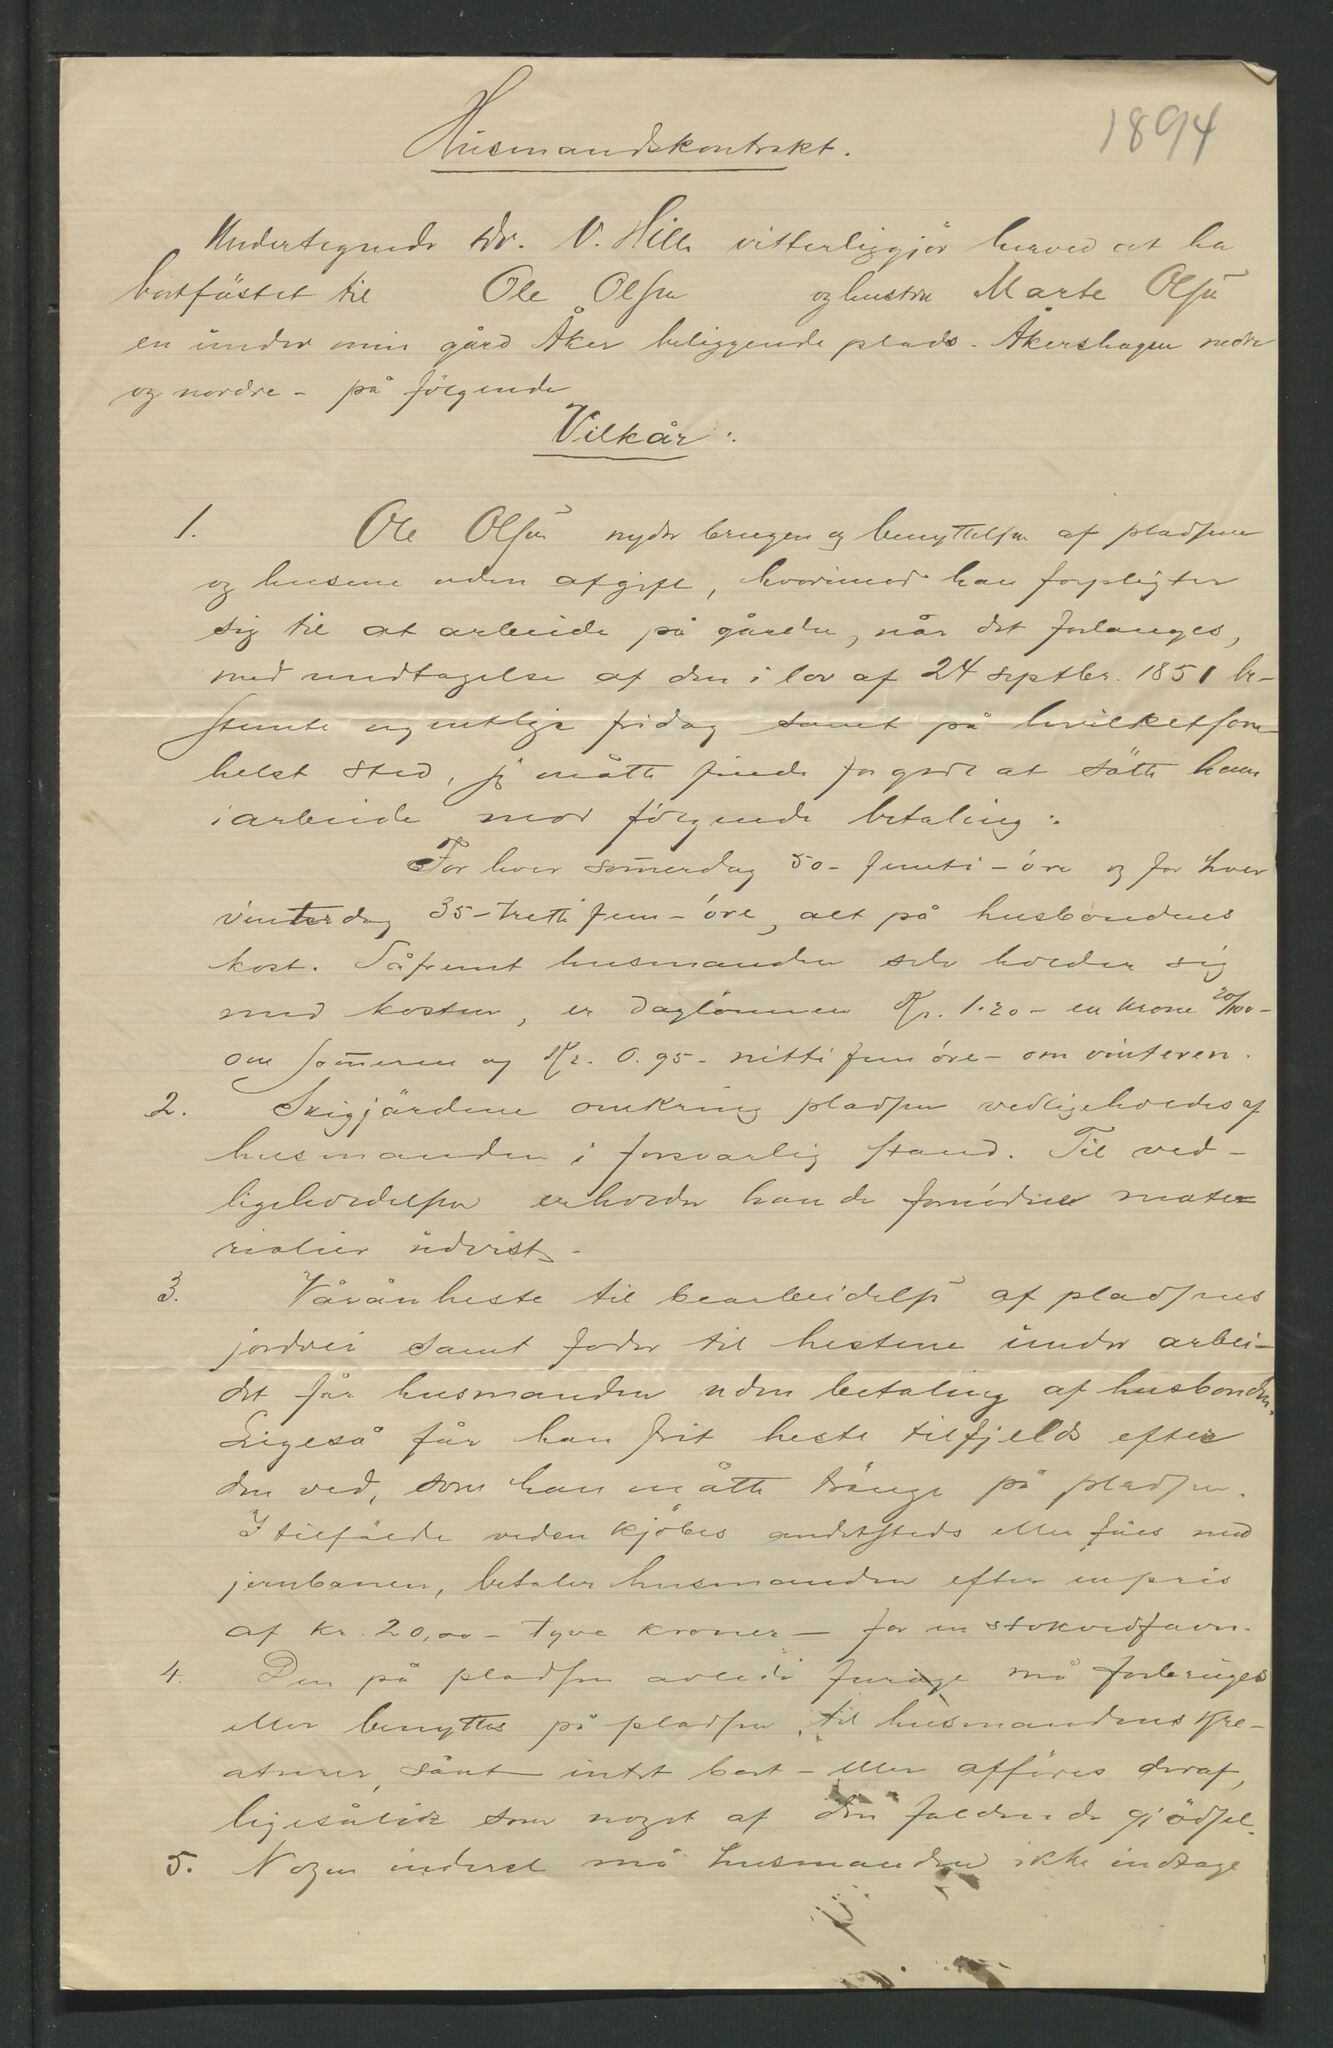 1894
Husmandskontrakt.
Undertegnede Dr. V. Hille vitterliggjör herved at ha
bortfästet til Ole Olsen og hustru Marte Olsen
en under min gård Åker beliggende plads - Åkershagen nedre
og nordre - på följende
Vilkår:
1. Ole Olsen nyder brugen og benyttelsen af pladsene
og husene uden afgift, hvorimod han forpligter
sig til at arbeide på gården, når det forlanges,
med undtagelse af den i lov af 24 septbr. 1851 be-
stemte ugentlige fridag samt på hvilketsom-
helst sted, jeg måtte finde for godt at sätte ham
i arbeide mod fölgende betaling:
For hver som̅erdag 50 - femti - öre og for hver
vinterdag 35 - tretti fem - öre, alt på husbondens
kost. Såfremt husmanden selv holder sig
med kosten, er daglönnen Kr. 1.20 - en krone 20/100 -
om som̅eren og Kr. 0.95 - nitti fem öre - om vinteren.
2. Skigjärdene omkring pladsen vedligeholdes af
husmanden i forsvarlig stand. Til ved-
ligeholdelsen erholder han de fornödne mate-
rialier udvist.
3. Vårånheste til bearbeidelse af pladsens
jordvei samt foder til hestene under arbei-
det får husmanden uden betaling af husbonden.
Ligeså får han frit heste tilfjelds efter
den ved, som han måtte tränge på pladsen.
I tilfälde veden kjöbes andetsteds eller fåes med
jernbanen, betaler husmanden efter en pris
af kr. 20,00 - tyve kroner - for en stokvedfavn.
4. Den på pladsen avlede furage må forbruges
eller benyttes på pladsen til husmandens kre-
aturer, samt intet bort- eller afföres deraf,
ligesålidt som noget af den faldende gjödsel.
5. Nogen inderst må husmanden ikke indtage